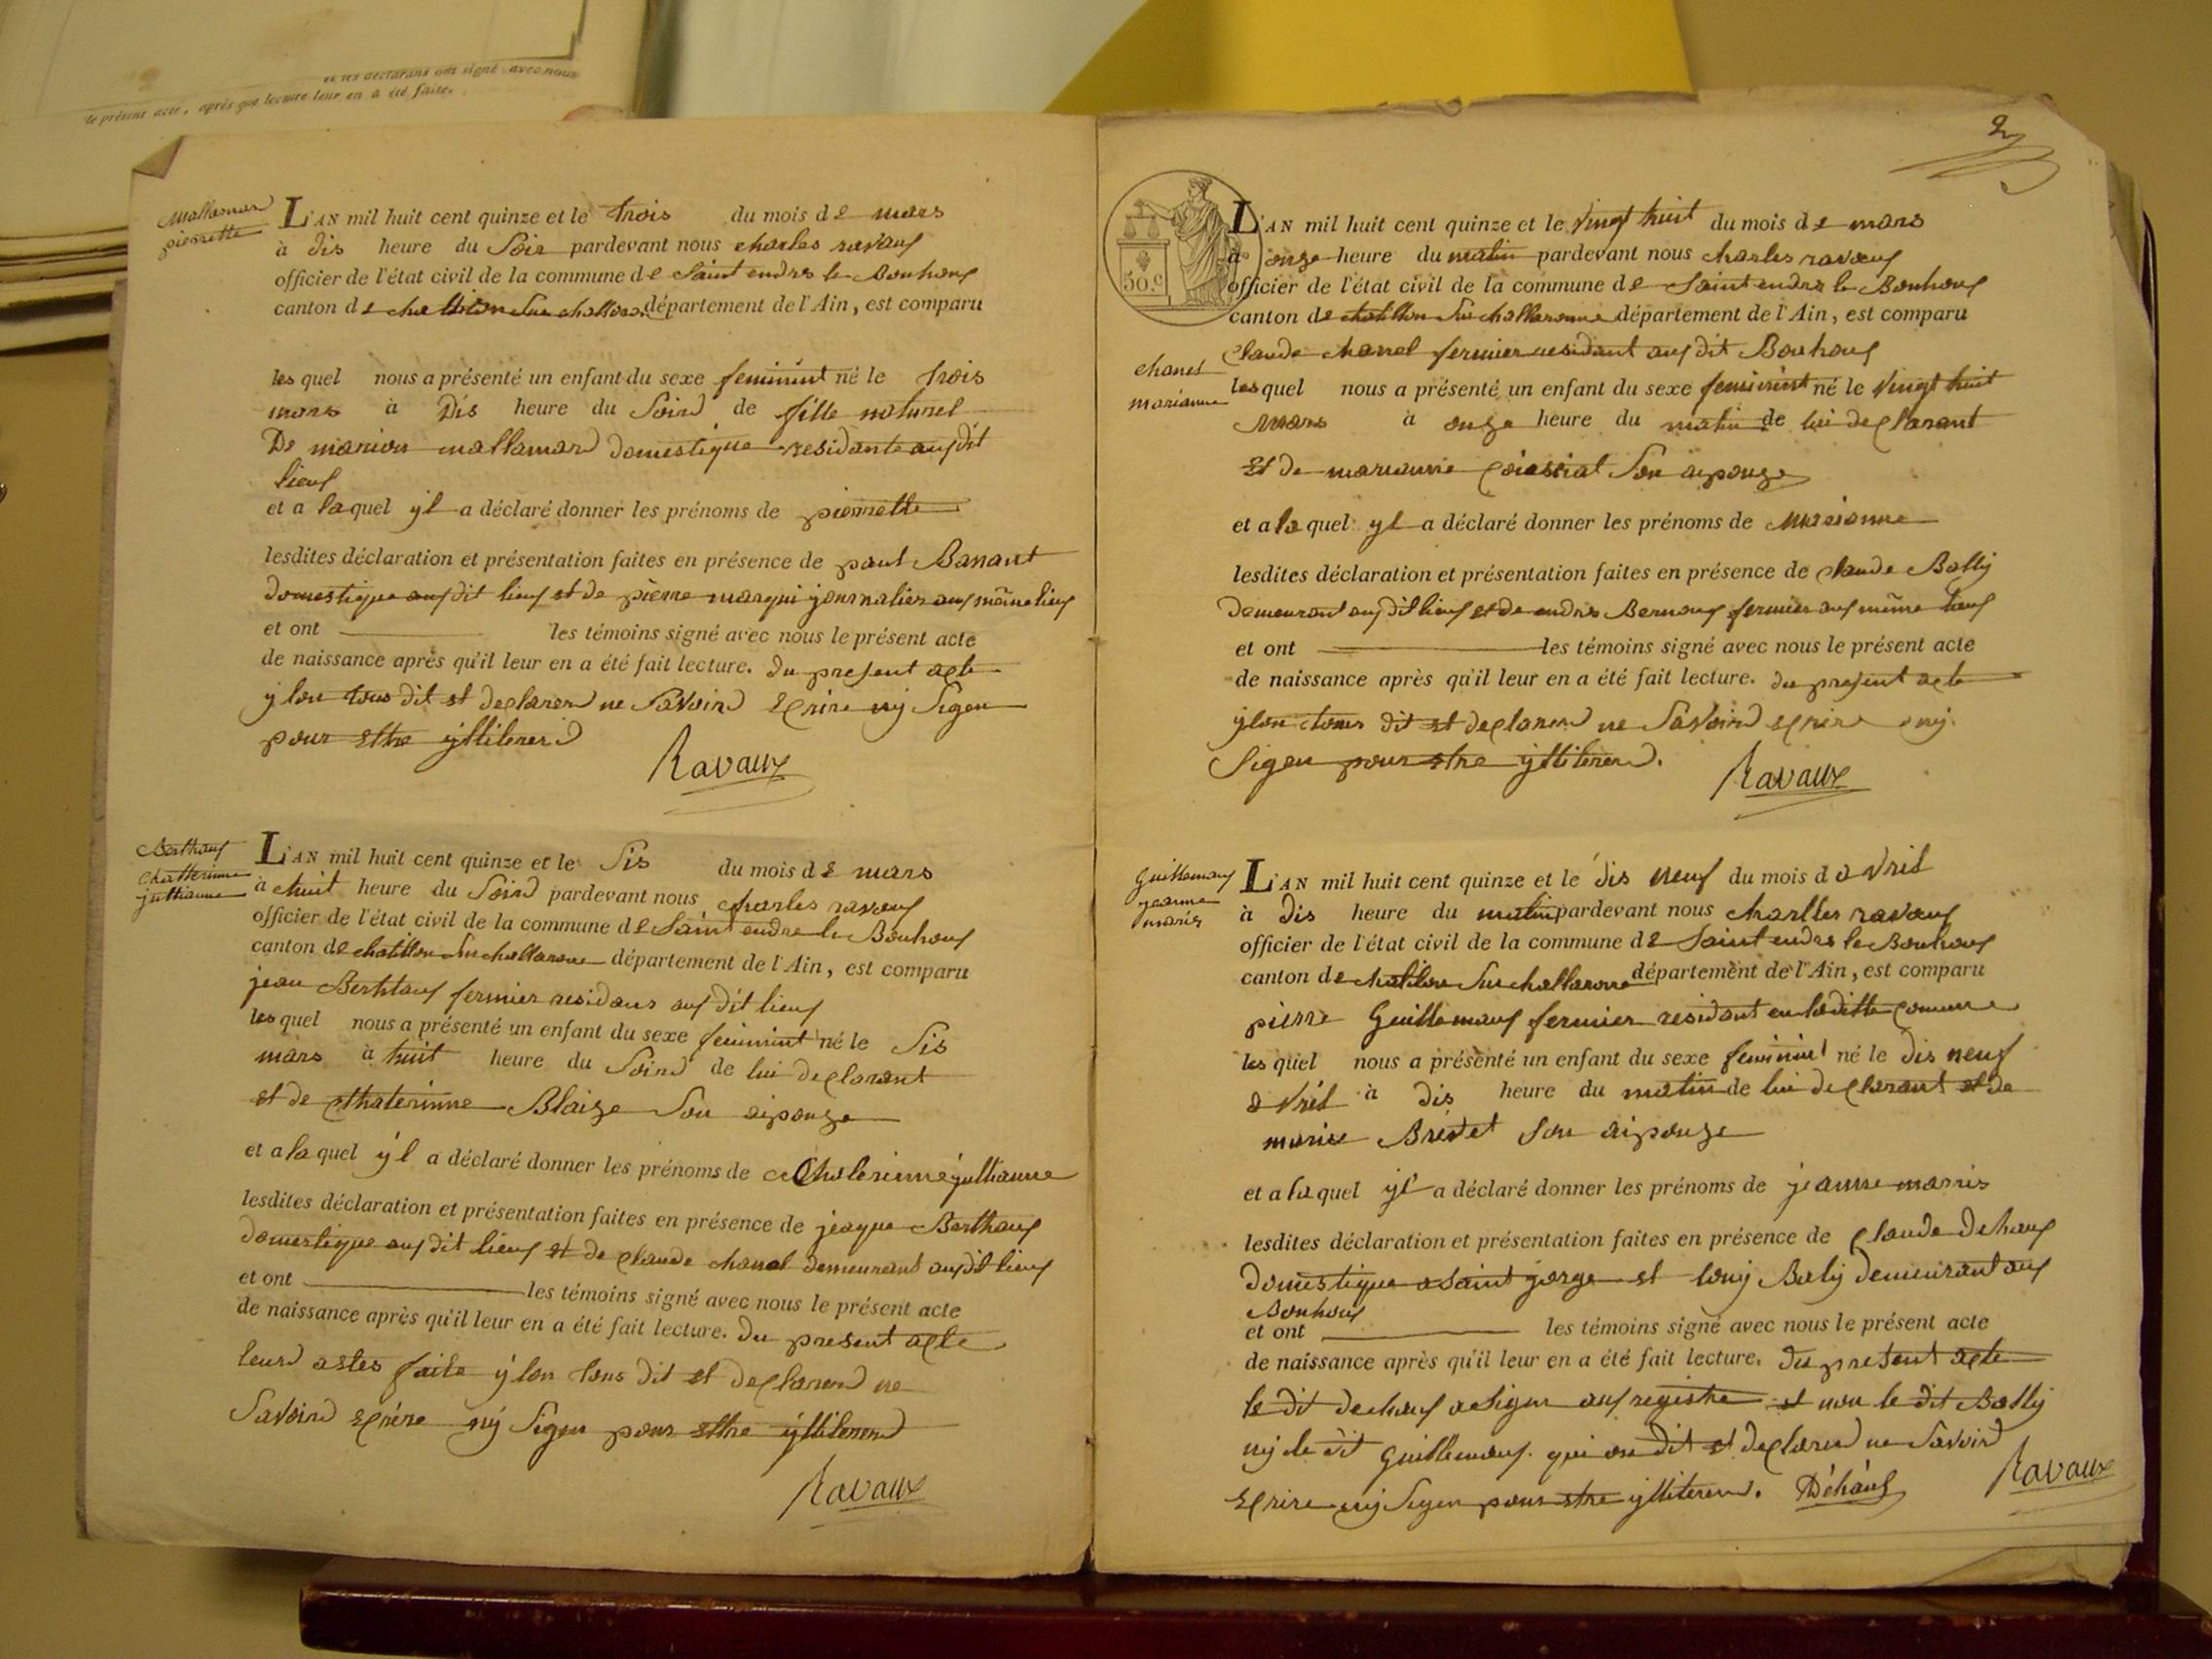 et les déclarans ont signé avec nous
le présent acte, après que lecture leur en a été faite.
Mallamar
pierrette
L'AN mil huit cent quinze et le trois du mois de mars
à dis heure du Soir pardevant nous charles ravaux
officier de l'état civil de la commune de Saint endre le Bouhoux
canton de département de l'Ain, est comparu
lesquel nous a présenté un enfant du sexe feminint né le trois
mars à Dis heure du Soird de fille naturel
De marion mallamard domestique residante aux dit
lieux
et a laquel yl a déclaré donner les prénoms de pierrette
lesdites déclaration et présentation faites en présence de paul Banant
domestique aux dit lieux et de pierre marqui journalier aux même lieux
et ont les témoins signé avec nous le présent acte
de naissance après qu'il leur en a été fait lecture. du present acte
ylon tous dit et declarerd ne Savoird Ecrire ny Signer
pour Ettre yllitererd
Ravaux
Berthoux
Chatterinne
jullianne
L'AN mil huit cent quinze et le Sis du mois de mars
à huit heure du Soird pardevant nous charles ravaux
officier de l'état civil de la commune de Saint endre le Bouhoux
canton de chatillon Sur challarone département de l'Ain, est comparu
jean Berthoux fermier residans aux dit lieux
lesquel nous a présenté un enfant du sexe feminint né le Sis
mars à huit heure du Soird de lui declarant
et de Blaize Son aipouze
et a laquel yl a déclaré donner les prénoms de jullianne
lesdites déclaration et présentation faites en présence de jeaque Berthoux
domestique aux dit lieux et de Claude chanel demeurant aux dit lieux
et ont les témoins signé avec nous le présent acte
de naissance après qu'il leur en a été fait lecture. du present acte
leurd astes faite ylon tous dit et declarerd ne
Savoird Ecrire ny Signer pour Ettre yllitererd
Ravaux
2
50.c
L'AN mil huit cent quinze et le Vingt huit du mois de mars
à onze heure du matin pardevant nous charles ravaux
officier de l'état civil de la commune de Saint endre le Bouhoux
canton de chatillon Sur challaronne département de l'Ain, est comparu
Claude chanel fermier residant aux dit Bouhoux
chanel
marianne
lesquel nous a présenté un enfant du sexe feminint né le Vingt huit
Mars à onze heure du matin de lui declarant
Et de marianne Son aipouze
et a laquel yl a déclaré donner les prénoms de Marianne
lesdites déclaration et présentation faites en présence de Claude Bally
demeurant aux dit lieux et de endre Bernoux fermier aux même lieux
et ont les témoins signé avec nous le présent acte
de naissance après qu'il leur en a été fait lecture. du present acte
ylon tous dit et declarerd ne Savoird ecrire ny
Signer pour etre yllitererd.
Ravaux
Guillemaux
jeanne
marie
L'AN mil huit cent quinze et le dis neuf du mois d avril
à Dis heure du matin pardevant nous charlles ravaux
officier de l'état civil de la commune de Saint endre le Bouhoux
canton de chatilon Sur challarone département de l'Ain, est comparu
pierre Guillemaux fermier residant en laditte comune
lesquel nous a présenté un enfant du sexe feminint né le dis neuf
avril à dis heure du matin de lui declarant et de
marie Brevet Son aipouze
et a laquel yl a déclaré donner les prénoms de jeanne marie
lesdites déclaration et présentation faites en présence de Claude Dehaux
domestique a Saint jorge et louy Baly demeurant aux
Bouhoux
et ont les témoins signé avec nous le présent acte
de naissance après qu'il leur en a été fait lecture. du present acte
le dit dechaux a Signer aux registre et non le dit Bally
ny le dit Guillemaux qui on dit et declarerd ne Savoird
Ecrire ny Signer pour etre yllitererd. Déhaus
Ravaux